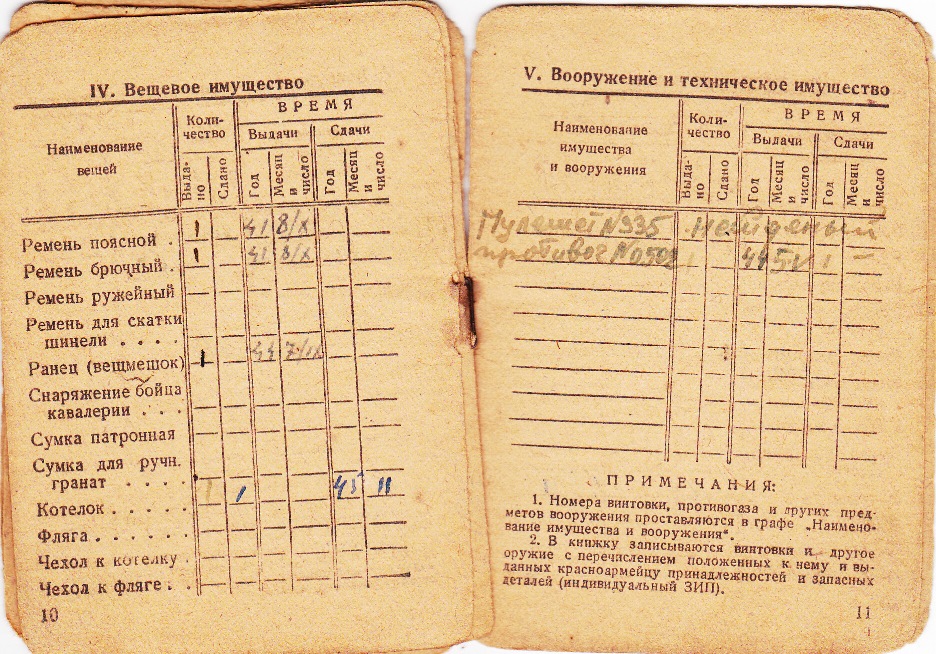 IV. Вещевое имущество
Наименование вещей
Коли-
чество
ВРЕМЯ
Выдачи
Сдачи
Выда-
но
Сдано
Год
Месяц
и
число
Год
Месяц
и
число
Ремень поясной . 1 41 8/X
Ремень брючный . 1 41 8/X
Ремень ружейный
Ремень для скатки
шинели . . . .
Ранец (вещмешок) 1 44 7/IX
Снаряжение бойца
кавалерии . . .
Сумка патронная
Сумка для ручн.
гранат . . . .
Котелок . . . . . 1 1 45 11
Фляга . . . . . .
Чехол к котелку .
Чехол к фляге . .
10
V. Вооружение и техническое имущество
Наименование
имущества
и вооружения
Коли-
чество
ВРЕМЯ
Выдачи
Сдачи
Выда-
но
Сдано
Год
Месяц
и
число
Год
Месяц
и
число
№335
противог №0502 1 44
ПРИМЕЧАНИЯ:
1. Номера винтовки, противогаза и других пред-
метов вооружения проставляются в графе „Наимено-
вание имущества и вооружения“.
2. В книжку записываются винтовки и другое
оружие с перечислением положенных к нему и вы-
данных красноармейцу принадлежностей и запасных
деталей (индивидуальный ЗИП).
11